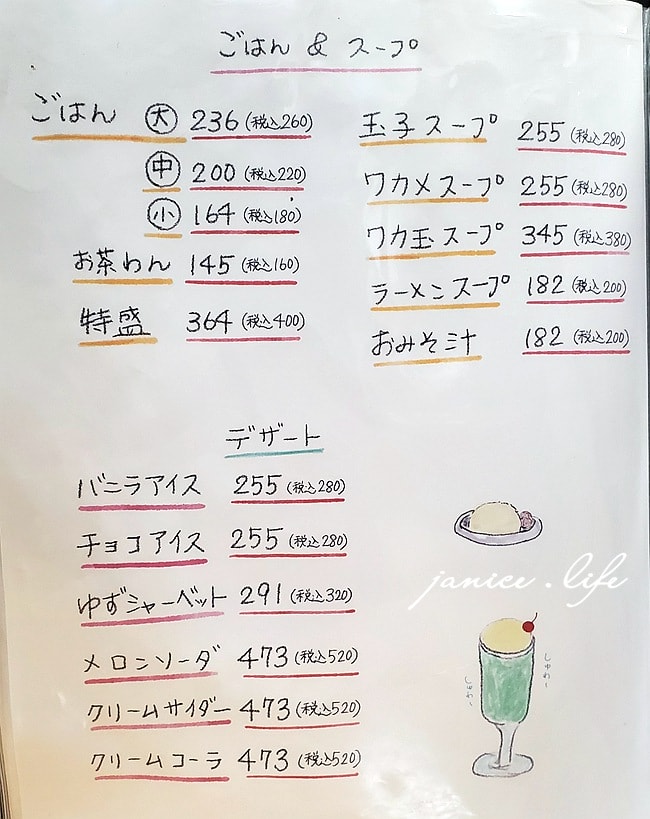 ごはん & スープ
ごはん 大 236 (税込260)
中 200 (税込220)
小 164 (税込180)
お茶わん 145 (税込160)
特盛 364 (税込400)
玉子スープ 255 (税込280)
ワカメスープ 255 (税込280)
ワカ玉スープ 345 (税込380)
ラーメンスープ 182 (税込200)
おみそ汁 182 (税込200)
デザート
バニラアイス 255 (税込280)
チョコアイス 255 (税込280)
ゆずシャーベット 291 (税込320)
メロンソーダ 473 (税込520)
クリームサイダー 473 (税込520)
クリームコーラ 473 (税込520)
janice.life
しゅわ〜
しゅわ〜